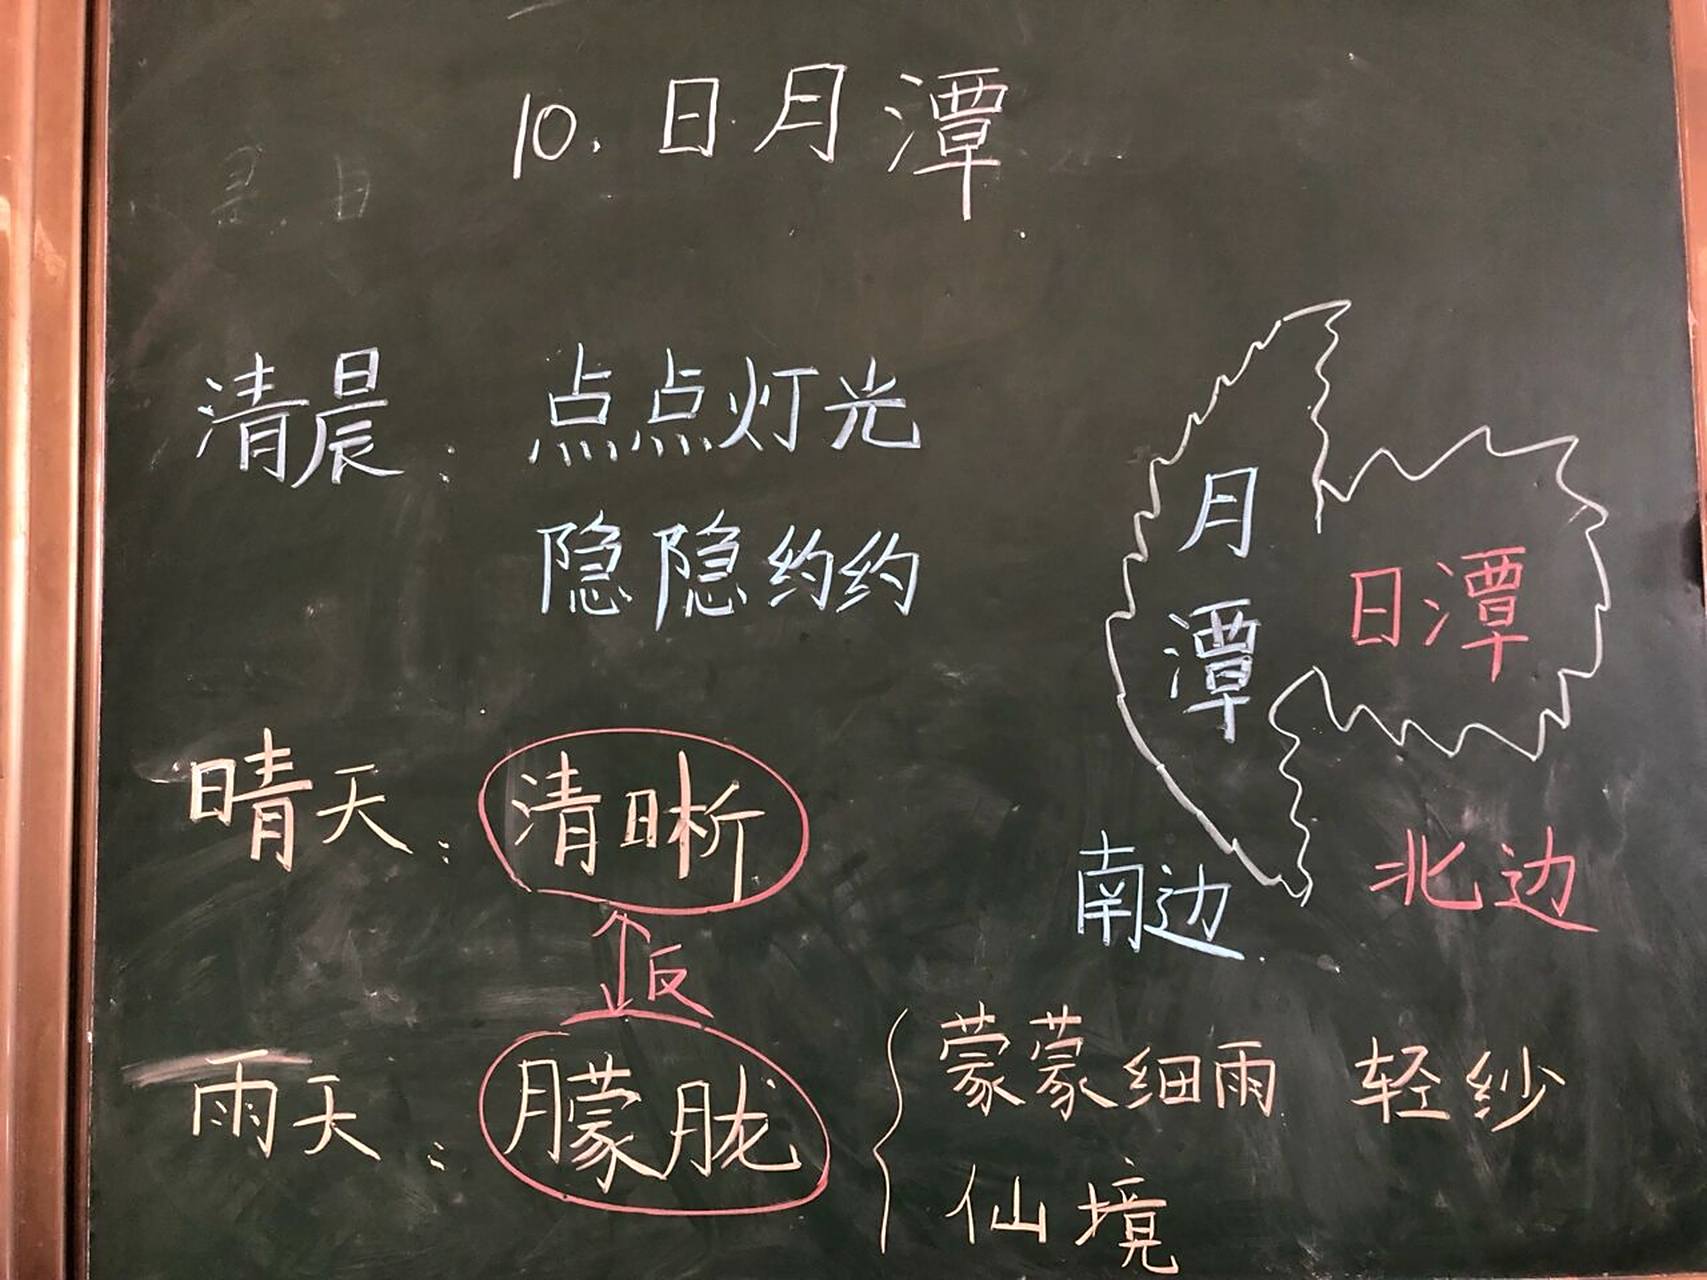 10.日月潭
清晨: 点点灯光
隐隐约约
月潭
日潭
南边
北边
晴天: 清晰
反
雨天: 朦胧
蒙蒙细雨 轻纱
仙境